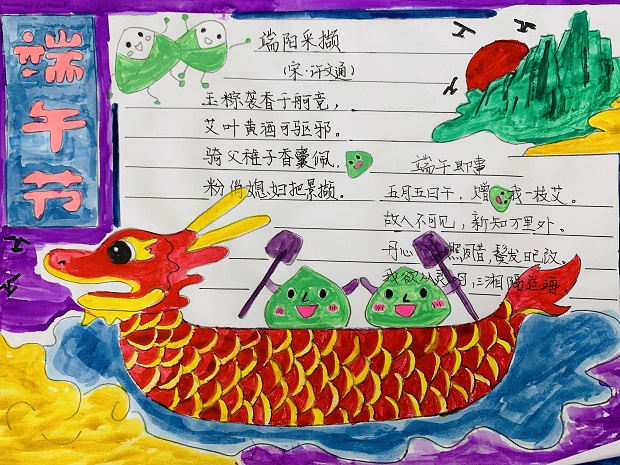 端午节
端阳采撷
(宋·许文通)
玉粽袭香千竞，
艾叶黄酒可驱邪。
骑父稚子香囊佩，
粉俏媳妇把景撷。
端午即事
五月五日午，赠我一枝艾。
故人不可见，新知万里外。
丹心，鬓发日已改。
我欲，三湘隔海。